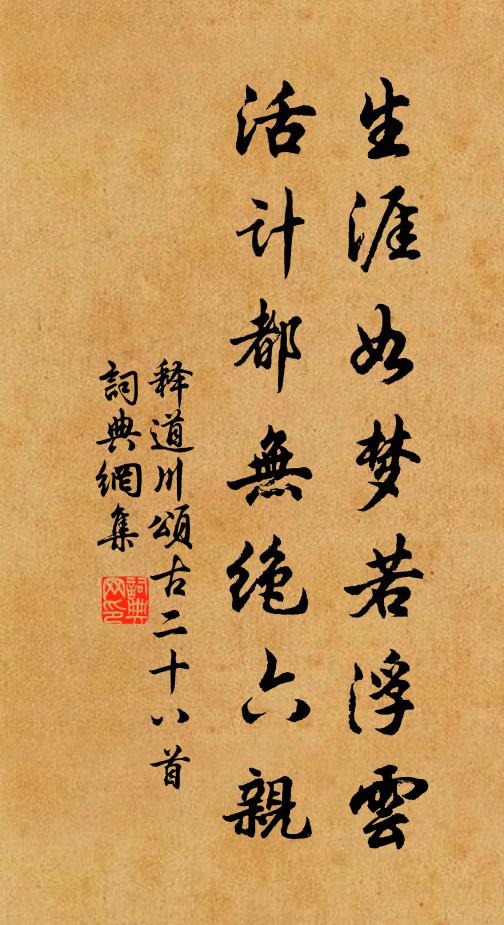 生涯如梦若浮雲
活计都無绝六親
释道川頌古二十八首
詞典網集
詞典
网印